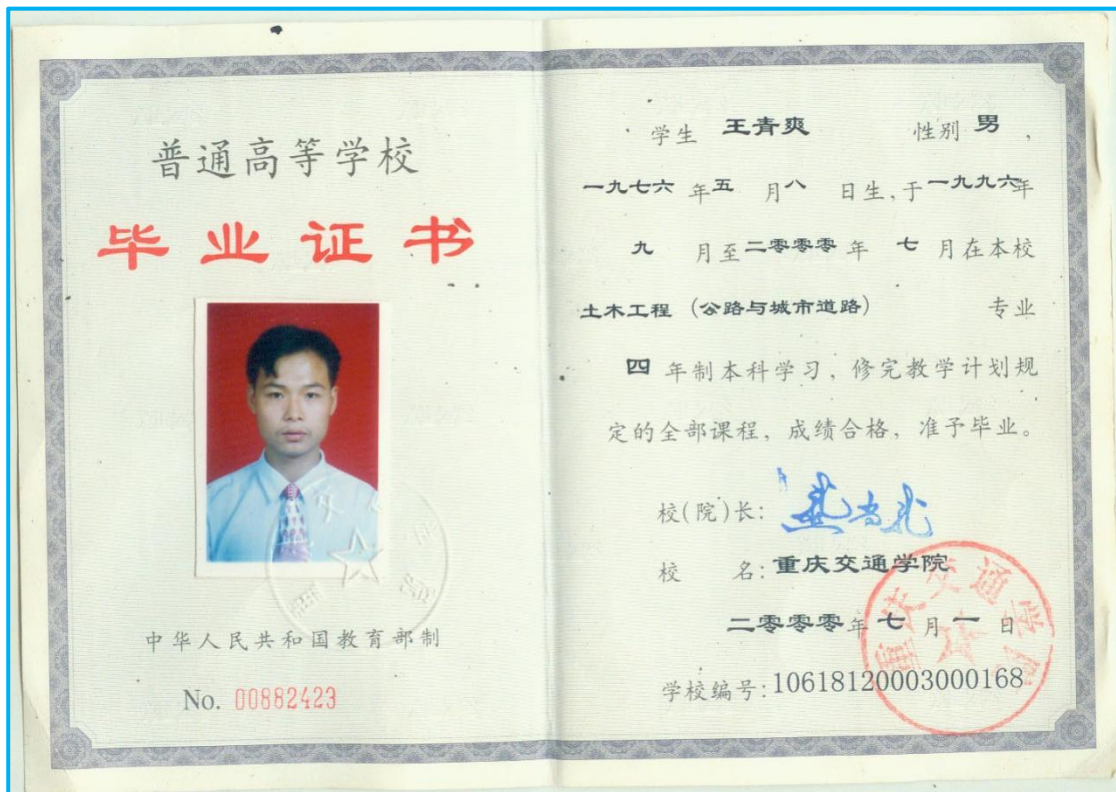 普通高等学校
毕业证书
中华人民共和国教育部制
No. 00882423
学生 王青爽 性别 男,
一九七六 年 五 月 八 日生,于 一九九六 年
九 月至 二零零零 年 七 月在本校
土木工程 (公路与城市道路) 专业
四 年制本科学习,修完教学计划规
定的全部课程,成绩合格,准予毕业。
校(院)长:
校 名: 重庆交通学院
二零零零 年 七 月 一 日
学校编号: 10618120003000168
重庆交通学院